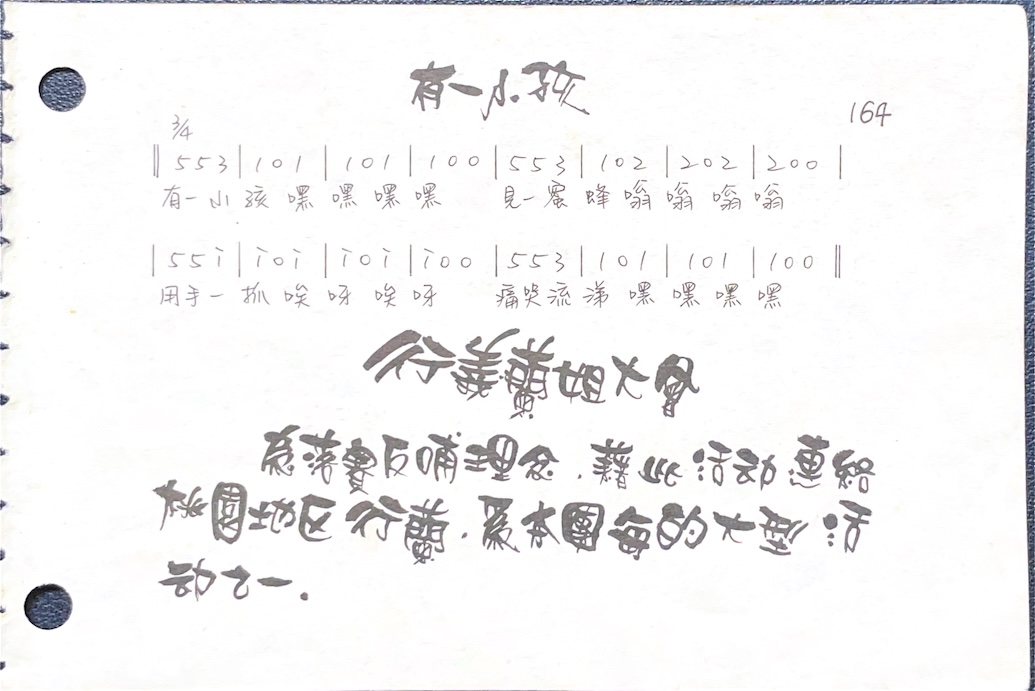 有一小孩
164
3/4
‖553|101|101|100|553|102|202|200|
有一小孩嘿嘿嘿嘿 見一蜜蜂嗡嗡嗡嗡
|55i|i0i|i0i|i00|553|101|101|100‖
用手一抓唉呀唉呀 痛哭流涕嘿嘿嘿嘿
行義蘭姐大會
為落實反哺理念.藉此活动連絡
桃園地区行蘭.為本團每的大型活
动之一.